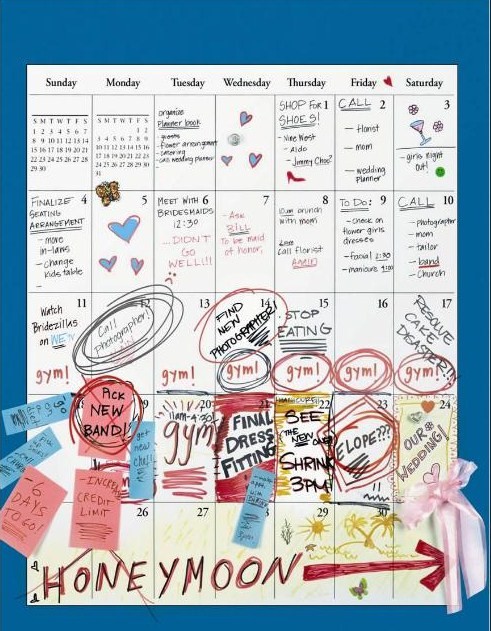 Sunday Monday Tuesday Wednesday Thursday Friday Saturday
S M T W T F S
1 2 3 4 5 6 7
8 9 10 11 12 13 14
15 16 17 18 19 20 21
22 23 24 25 26 27 28
29 30
S M T W T F S
1 2
3 4 5 6 7 8 9
10 11 12 13 14 15 16
17 18 19 20 21 22 23
24 25 26 27 28 29 30
31
organize
planner book
- guests
- flower arrangement
- catering
- call wedding planner
SHOP FOR 1
SHOES!
- Nine West
- Aldo
- Jimmy Choo?
CALL 2
- florist
- mom
- wedding
planner
3
- girls night
out!
FINALIZE 4
SEATING
ARRANGEMENT
- move
in-laws
- change
kids table
5
MEET WITH 6
BRIDESMAIDS
12:30
...DIDN'T
GO
WELL!!!
7
- Ask
BILL
to be maid
of honor,
8
10am brunch
with mom
2pm
Call florist
AGAIN
TO DO: 9
- check on
flower girls
dresses
- facial 2:30
- manicure 4:00
CALL 10
- photographer
- mom
- tailor
- band
- Church
11
Watch
Bridezillas
on WE
gym!
12
Call
photographer!
13
gym!
14
FIND
NEW
PHOTOGRAPHER!
gym!
15
STOP
EATING
gym!
16
gym!
17
RESOLVE
CAKE
DISASTER!!
gym!
PICK
NEW
BAND!!
get
new
chef!!
20
11am-4:30
gym
21
FINAL
DRESS
FITTING
22
SEE
THE NEW
SHRINK
3PM!
23
ELOPE???
!!
24
OUR
WEDDING!
-6
DAYS
TO GO!
-INCREASE
CREDIT
LIMIT
26 27 29 30
HONEYMOON